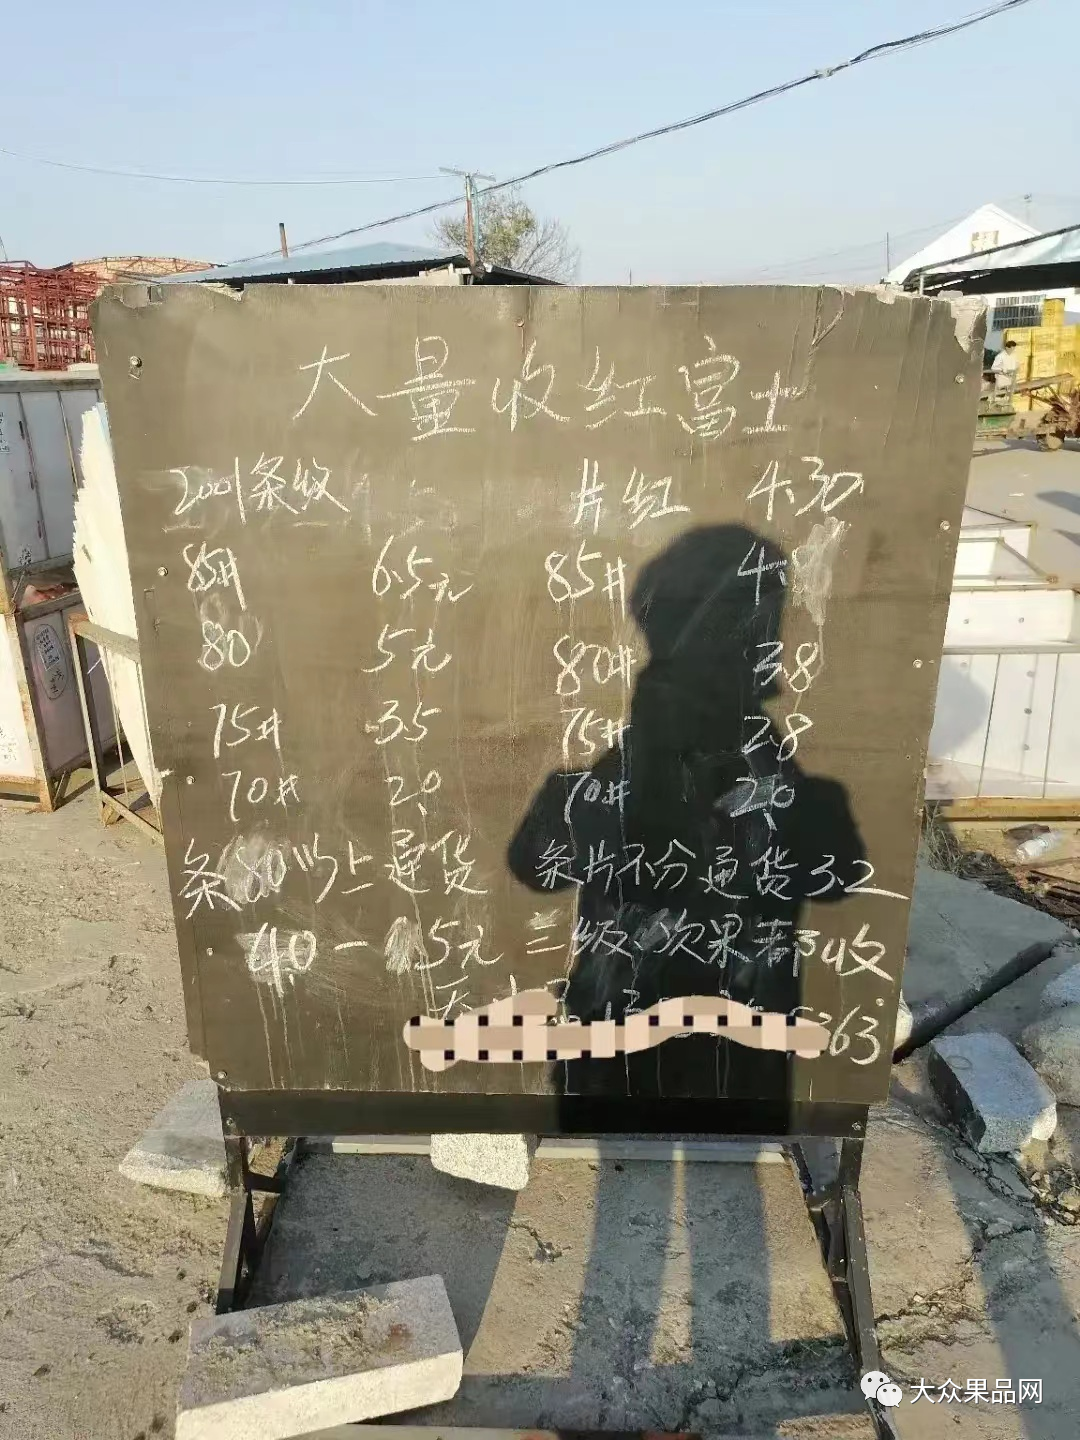 大量收红富士
2001条收 片红 4.30
85# 6.5元 85# 4.8
80 5元 80# 3.8
75# 3.5 75# 2.8
70# 2.0 70# 2.0
条80以上通货 条片不分通货3.2
4.0一 5元 三级、次果都收
363
大众果品网